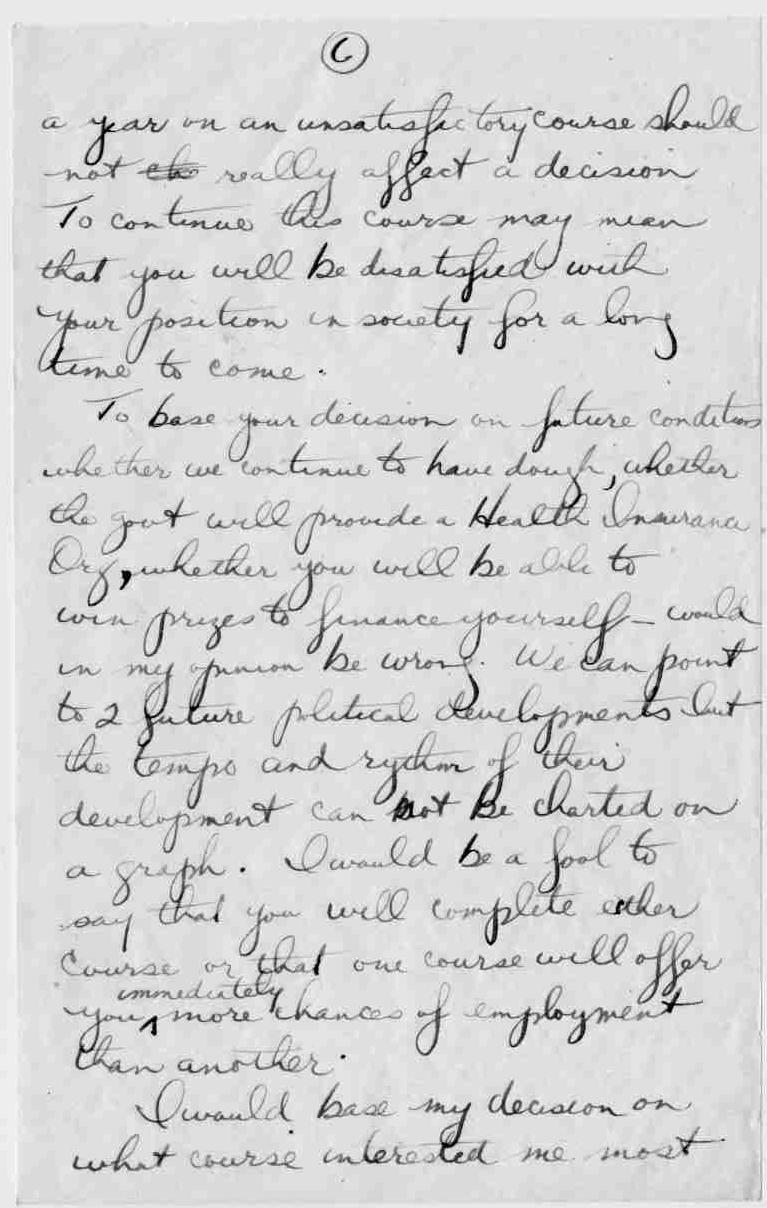 6
a year on an unsatisfactory course should
not ch really affect a decision
To continue this course may mean
that you will be disatisfied with
your position in society for a long
time to come.
To base your decision on future conditions
whether we continue to have dough, whether
the govt will provide a Health Insurance
Org, whether you will be able to
win prizes to finance yourself - would
in my opinion be wrong. We can point
to 2 future political developments but
the tempo and rythm of their
development can not be charted on
a graph. I would be a fool to
say that you will complete either
course or that one course will offer
immediately
you ^ more chances of employment
than another.
I would base my decision on
what course interested me most